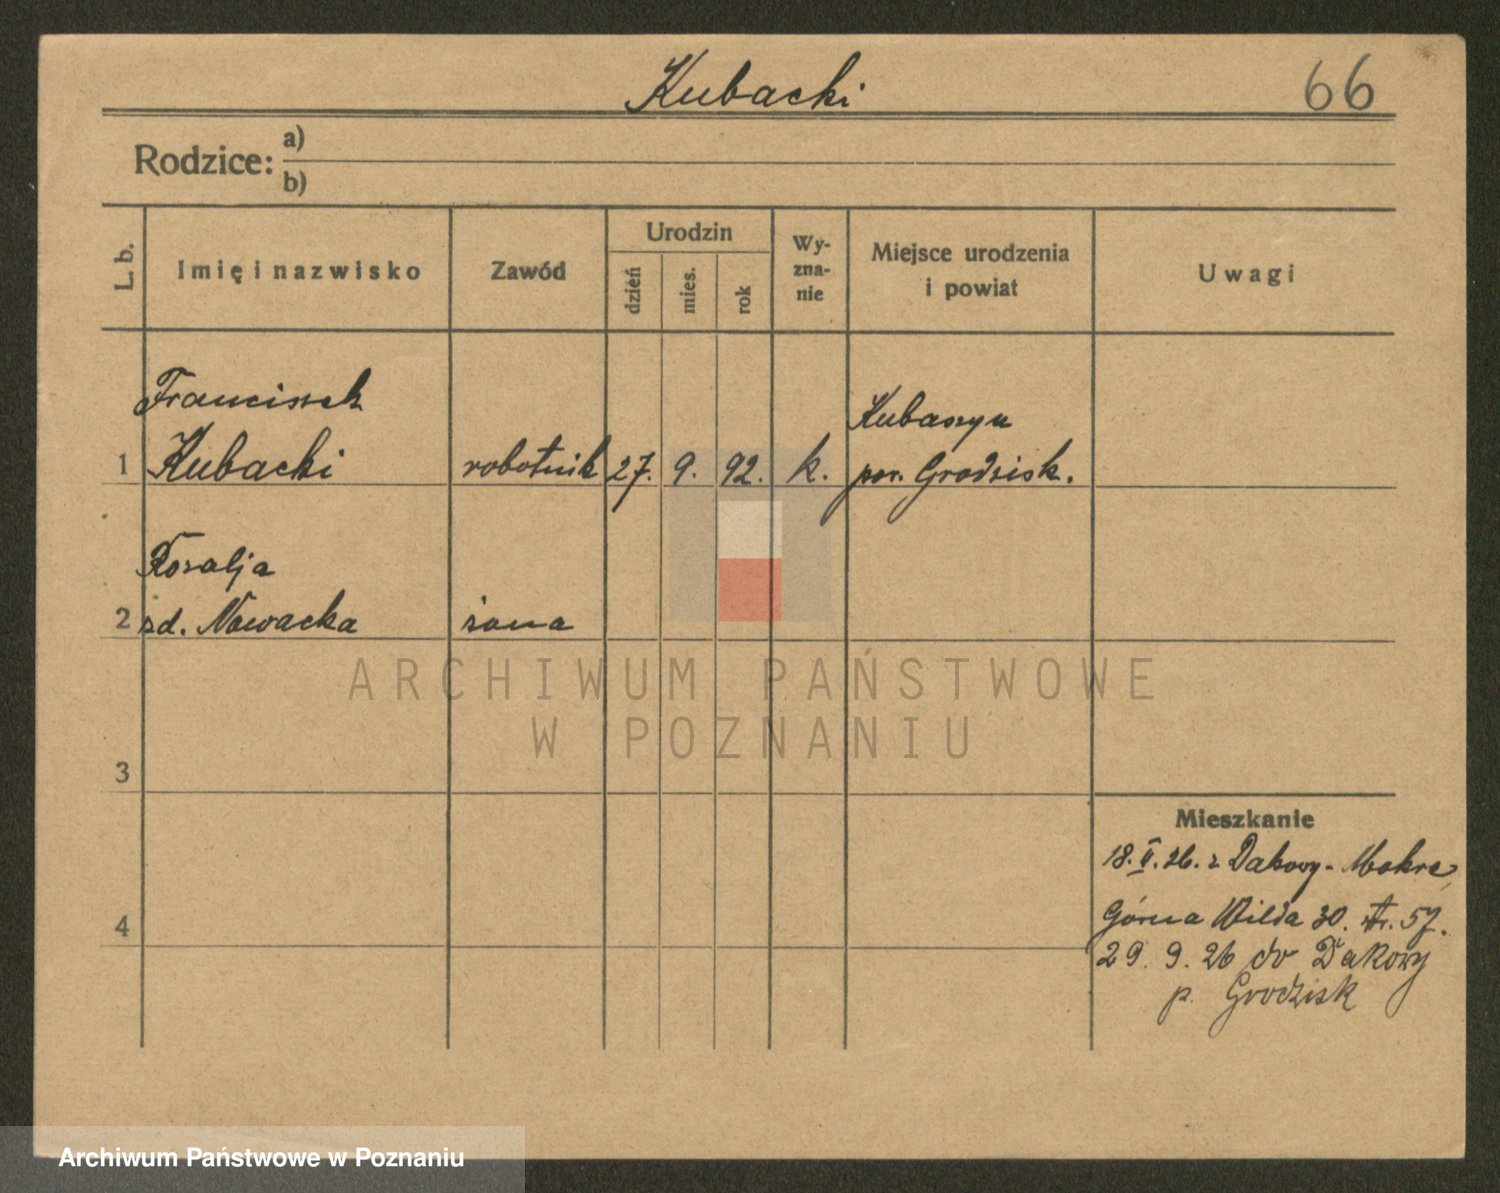 Kubacki
66
Rodzice: a)
b)
L. b.
Imię i nazwisko
Zawód
Urodzin
dzień
mies.
rok
Wy-
zna-
nie
Miejsce urodzenia
i powiat
Uwagi
Franciszek
Kubaszyn
1 Kubacki robotnik 27. 9. 92. k. pow. Grodzisk.
Rozalja
2 zd. Nowacka żona
ARCHIWUM PAŃSTWOWE
W POZNANIU
3
Mieszkanie
18.II.26. z Dakowy-Mokre,
4 Górna Wilda 30. 57.
29. 9. 26 do Dakowy
p. Grodzisk
Archiwum Państwowe w Poznaniu